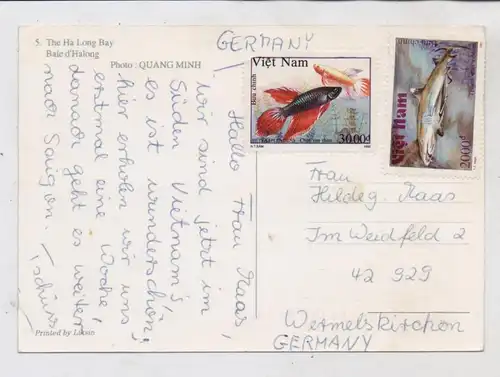 5. The Ha Long Bay
Baie d'Halong
Photo : QUANG MINH
Hallo Frau Maas,
wir sind jetzt im
Süden Vietnam's!
es ist wunderschön,
hier erholen wir uns
erstmal eine Woche,
danach geht es weiter
nach Saigon. Tschüss
Printed by Liksin
GERMANY
Việt Nam
Bưu chính
3000đ
Việt Nam
2000đ
Frau
Hildeg. Maas
Im Weidfeld 2
42 929
Wermelskirchen
GERMANY